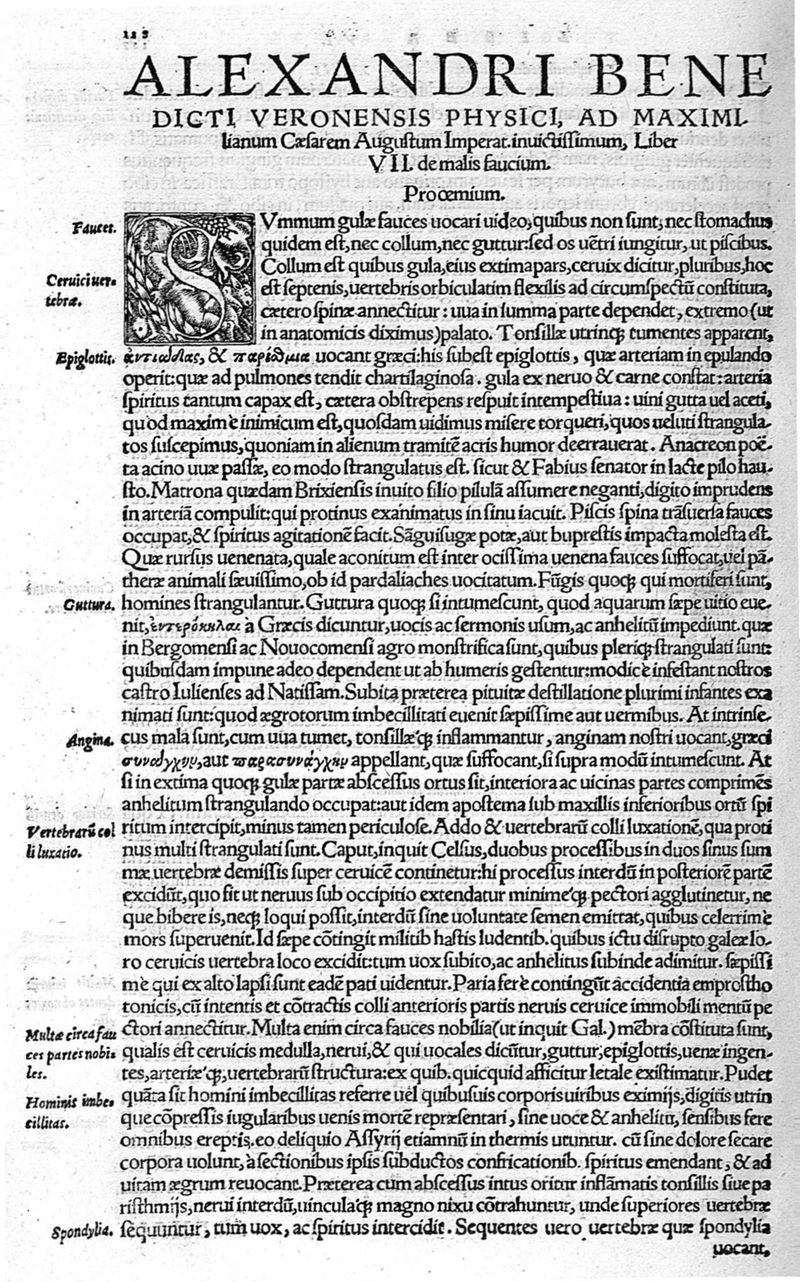 118
ALEXANDRI BENE
DICTI VERONENSIS PHYSICI, AD MAXIMI
lianum Cæsarem Augustum Imperat. inuictissimum, Liber
VII. de malis faucium.
Proœmium.
Fauces.
SVmmum gulæ fauces uocari uideo, quibus non sunt, nec stomachus
quidem est, nec collum, nec guttur: sed os uẽtri iungitur, ut piscibus.
Collum est quibus gula, eius extima pars, ceruix dicitur, pluribus, hoc
Ceruici uer-
tebræ.
est septenis, uertebris orbiculatim flexilis ad circumspectũ constituta,
cætero spinæ annectitur: uua in summa parte dependet, extremo (ut
in anatomicis diximus) palato. Tonsillæ utrinq; tumentes apparent,
Epiglottis.
ἀντιάδας, & παρίσθμια uocant græci: his subest epiglottis, quæ arteriam in epulando
operit: quæ ad pulmones tendit chartilaginosa. gula ex neruo & carne constat: arteria
spiritus tantum capax est, cætera obstrepens respuit intempestiua: uini gutta uel aceti,
quod maximè inimicum est, quosdam uidimus misere torqueri, quos ueluti strangula-
tos suscepimus, quoniam in alienum tramitẽ acris humor deerrauerat. Anacreon poë-
ta acino uuæ passæ, eo modo strangulatus est. sicut & Fabius senator in lacte pilo hau-
sto. Matrona quædam Brixiensis inuito filio pilulã assumere neganti, digito imprudens
in arteriã compulit: qui protinus exanimatus in sinu iacuit. Piscis spina trãsuersa fauces
occupat, & spiritus agitationẽ facit. Sãguisugæ potæ, aut buprestis impacta molesta est.
Quæ rursus uenenata, quale aconitum est inter ocissima uenena fauces suffocat, uel pã-
theræ animali sæuissimo, ob id pardaliaches uocitatum. Fũgis quoq; qui mortiferi sunt,
Guttura.
homines strangulantur. Guttura quoq; si intumescunt, quod aquarum sæpe uitio eue-
nit, ἐντερόκηλαι à Græcis dicuntur, uocis ac sermonis usum, ac anhelitũ impediunt. quæ
in Bergomensi ac Nouocomensi agro monstrifica sunt, quibus pleriq; strangulati sunt:
quibusdam impune adeo dependent ut ab humeris gestentur: modicè infestant nostros
castro Iulienses ad Natissam. Subita præterea pituitæ destillatione plurimi infantes exa
nimati sunt: quod ægrotorum imbecillitati euenit sæpissime aut uermibus. At intrinse-
Angina.
cus mala sunt, cum uua tumet, tonsillæq́; inflammantur, anginam nostri uocant, græci
συνάγχην, aut παρασυνάγχην appellant, quæ suffocant, si supra modũ intumescunt. At
si in extima quoq; gulæ parte abscessus ortus sit, interiora ac uicinas partes comprimẽs
anhelitum strangulando occupat: aut idem apostema sub maxillis inferioribus ortũ spi
Vertebrarũ col
li luxatio.
ritum intercipit, minus tamen periculose. Addo & uertebrarũ colli luxationẽ, qua proti
nus multi strangulati sunt. Caput, inquit Celsus, duobus processibus in duos sinus sum
mæ uertebræ demissis super ceruicẽ continetur: hi processus interdũ in posteriorẽ partẽ
excidũt, quo fit ut neruus sub occipitio extendatur minimeq́; pectori agglutinetur, ne
que bibere is, neq; loqui possit, interdũ sine uoluntate semen emittat, quibus celerrimè
mors superuenit. Id sæpe cõtingit militib. hastis ludentib. quibus ictu disrupto galeæ lo-
ro ceruicis uertebra loco excidit: tum uox subito, ac anhelitus subinde adimitur. sæpissi
mè qui ex alto lapsi sunt eadẽ pati uidentur. Paria ferè contingũt accidentia emprostho
tonicis, cũ intentis et cõtractis colli anterioris partis neruis ceruice immobili mentũ pe
Multæ circa fau
ces partes nobi-
les.
ctori annectitur. Multa enim circa fauces nobilia (ut inquit Gal.) mẽbra cõstituta sunt,
qualis est ceruicis medulla, nerui, & qui uocales dicũtur, guttur, epiglottis, uenæ ingen-
tes, arteriæq́;, uertebrarũ structura: ex quib. quicquid afficitur letale existimatur. Pudet
Hominis imbe-
cillitas.
quãta sit homini imbecillitas referre uel quibusuis corporis uiribus eximijs, digitis utrin
que cõpressis iugularibus uenis mortẽ repræsentari, sine uoce & anhelitu, sensibus fere
omnibus ereptis. eo deliquio Assyrij etiamnũ in thermis utuntur. cũ sine dolore secare
corpora uolunt, à sectionibus ipsis subductos confricationib. spiritus emendant, & ad
uitam ægrum reuocant. Præterea cum abscessus intus oritur inflãmatis tonsillis siue pa
risthmijs, nerui interdũ, uinculaq́; magno nixu cõtrahuntur, unde superiores uertebræ
Spondylia.
sequuntur, tum uox, ac spiritus intercidit. Sequentes uero uertebræ quæ spondylia
uocant,